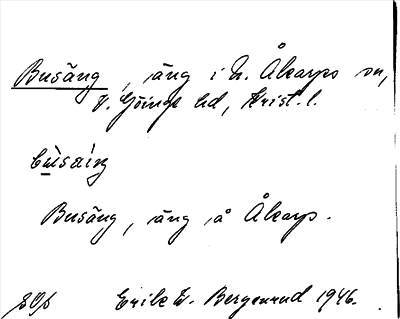 Busäng, äng i N. Åkarps sn,
V. Göinge hd, Krist. l.
Busäng, äng å Åkarp.
Erik W. Bergenrud 1946.